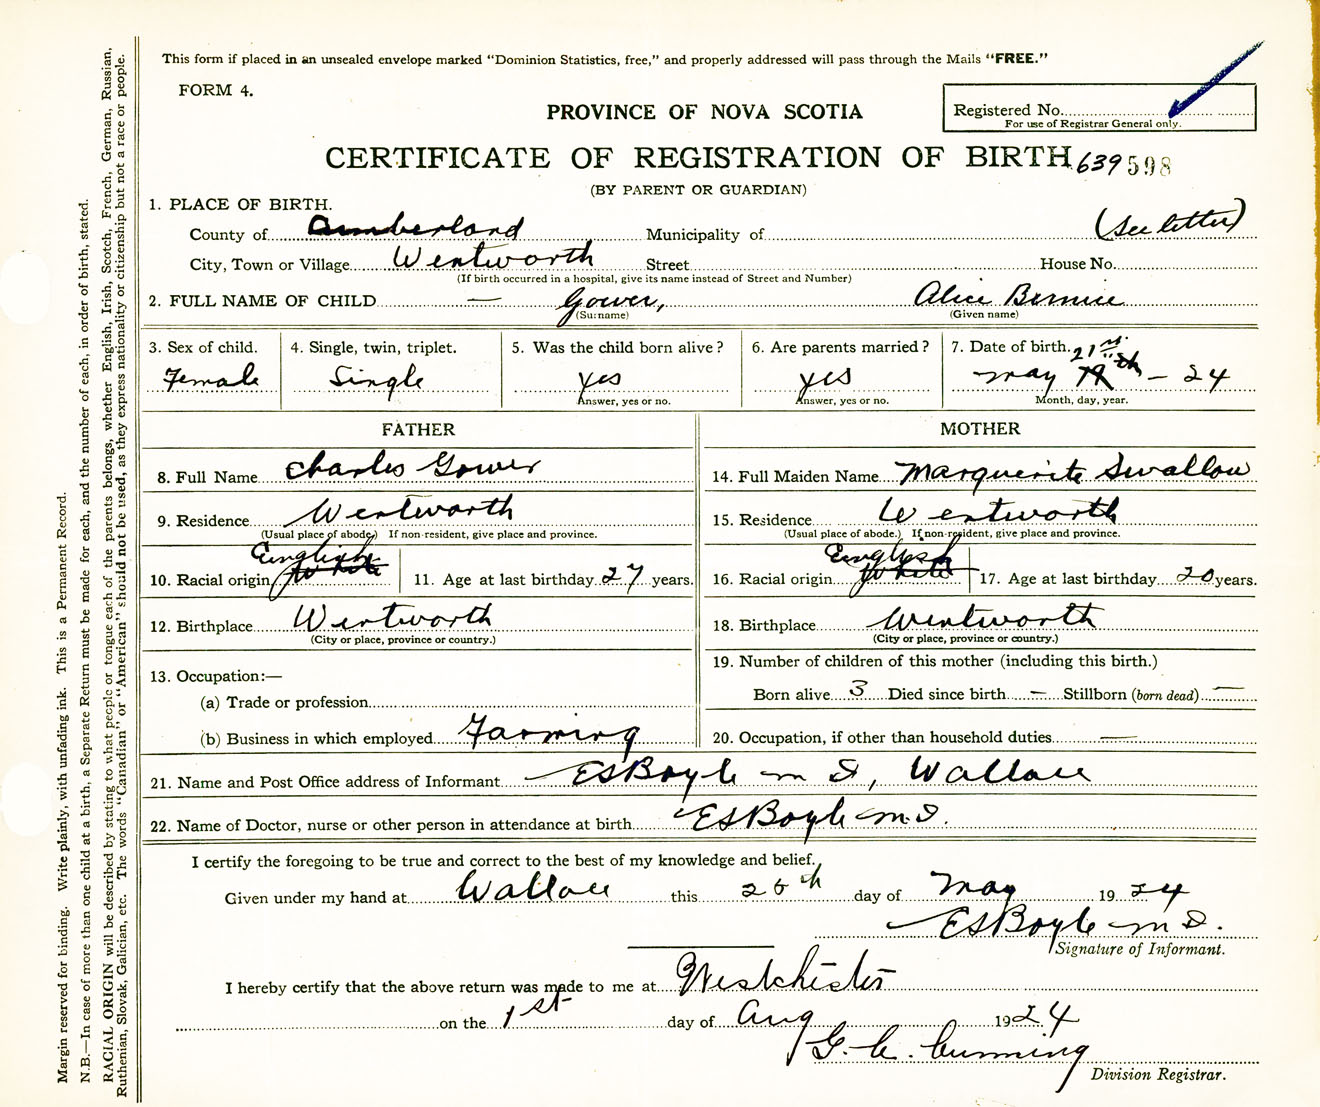 This form if placed in an unsealed envelope marked "Dominion Statistics, free," and properly addressed will pass through the Mails "FREE."
FORM 4.
PROVINCE OF NOVA SCOTIA
Registered No.
For use of Registrar General only.
CERTIFICATE OF REGISTRATION OF BIRTH 639 598
(BY PARENT OR GUARDIAN)
1. PLACE OF BIRTH.
County of Cumberland Municipality of (See letter)
City, Town or Village Wentworth Street House No.
(If birth occurred in a hospital, give its name instead of Street and Number)
2. FULL NAME OF CHILD — Gower, Alice Bernice
(Surname) (Given name)
3. Sex of child. 4. Single, twin, triplet. 5. Was the child born alive? 6. Are parents married? 7. Date of birth. 21st
Female Single yes yes May – 24
Answer, yes or no. Answer, yes or no. Month, day, year.
FATHER MOTHER
8. Full Name Charles Gower 14. Full Maiden Name Marguerite Swallow
9. Residence Wentworth 15. Residence Wentworth
(Usual place of abode) If non-resident, give place and province. (Usual place of abode.) If non-resident, give place and province.
English English
10. Racial origin White 11. Age at last birthday 27 years. 16. Racial origin White 17. Age at last birthday 20 years.
12. Birthplace Wentworth 18. Birthplace Wentworth
(City or place, province or country.) (City or place, province or country.)
13. Occupation:— 19. Number of children of this mother (including this birth.)
(a) Trade or profession Born alive 3 Died since birth – Stillborn (born dead) —
(b) Business in which employed Farming 20. Occupation, if other than household duties —
21. Name and Post Office address of Informant ESBoyle M D, Wallace
22. Name of Doctor, nurse or other person in attendance at birth ESBoyle M.D.
I certify the foregoing to be true and correct to the best of my knowledge and belief.
Given under my hand at Wallace this 26th day of May 1924
ESBoyle M D.
Signature of Informant.
I hereby certify that the above return was made to me at Westchester
on the 1st day of Aug 1924
G. C. Cumming
Division Registrar.
Margin reserved for binding. Write plainly, with unfading ink. This is a Permanent Record.
N.B.—In case of more than one child at a birth, a Separate Return must be made for each, and the number of each, in order of birth, stated.
RACIAL ORIGIN will be described by stating to what people or tongue each of the parents belongs, whether English, Irish, Scotch, French, German, Russian,
Ruthenian, Slovak, Galician, etc. The words "Canadian" or "American" should not be used, as they express nationality or citizenship but not a race or people.